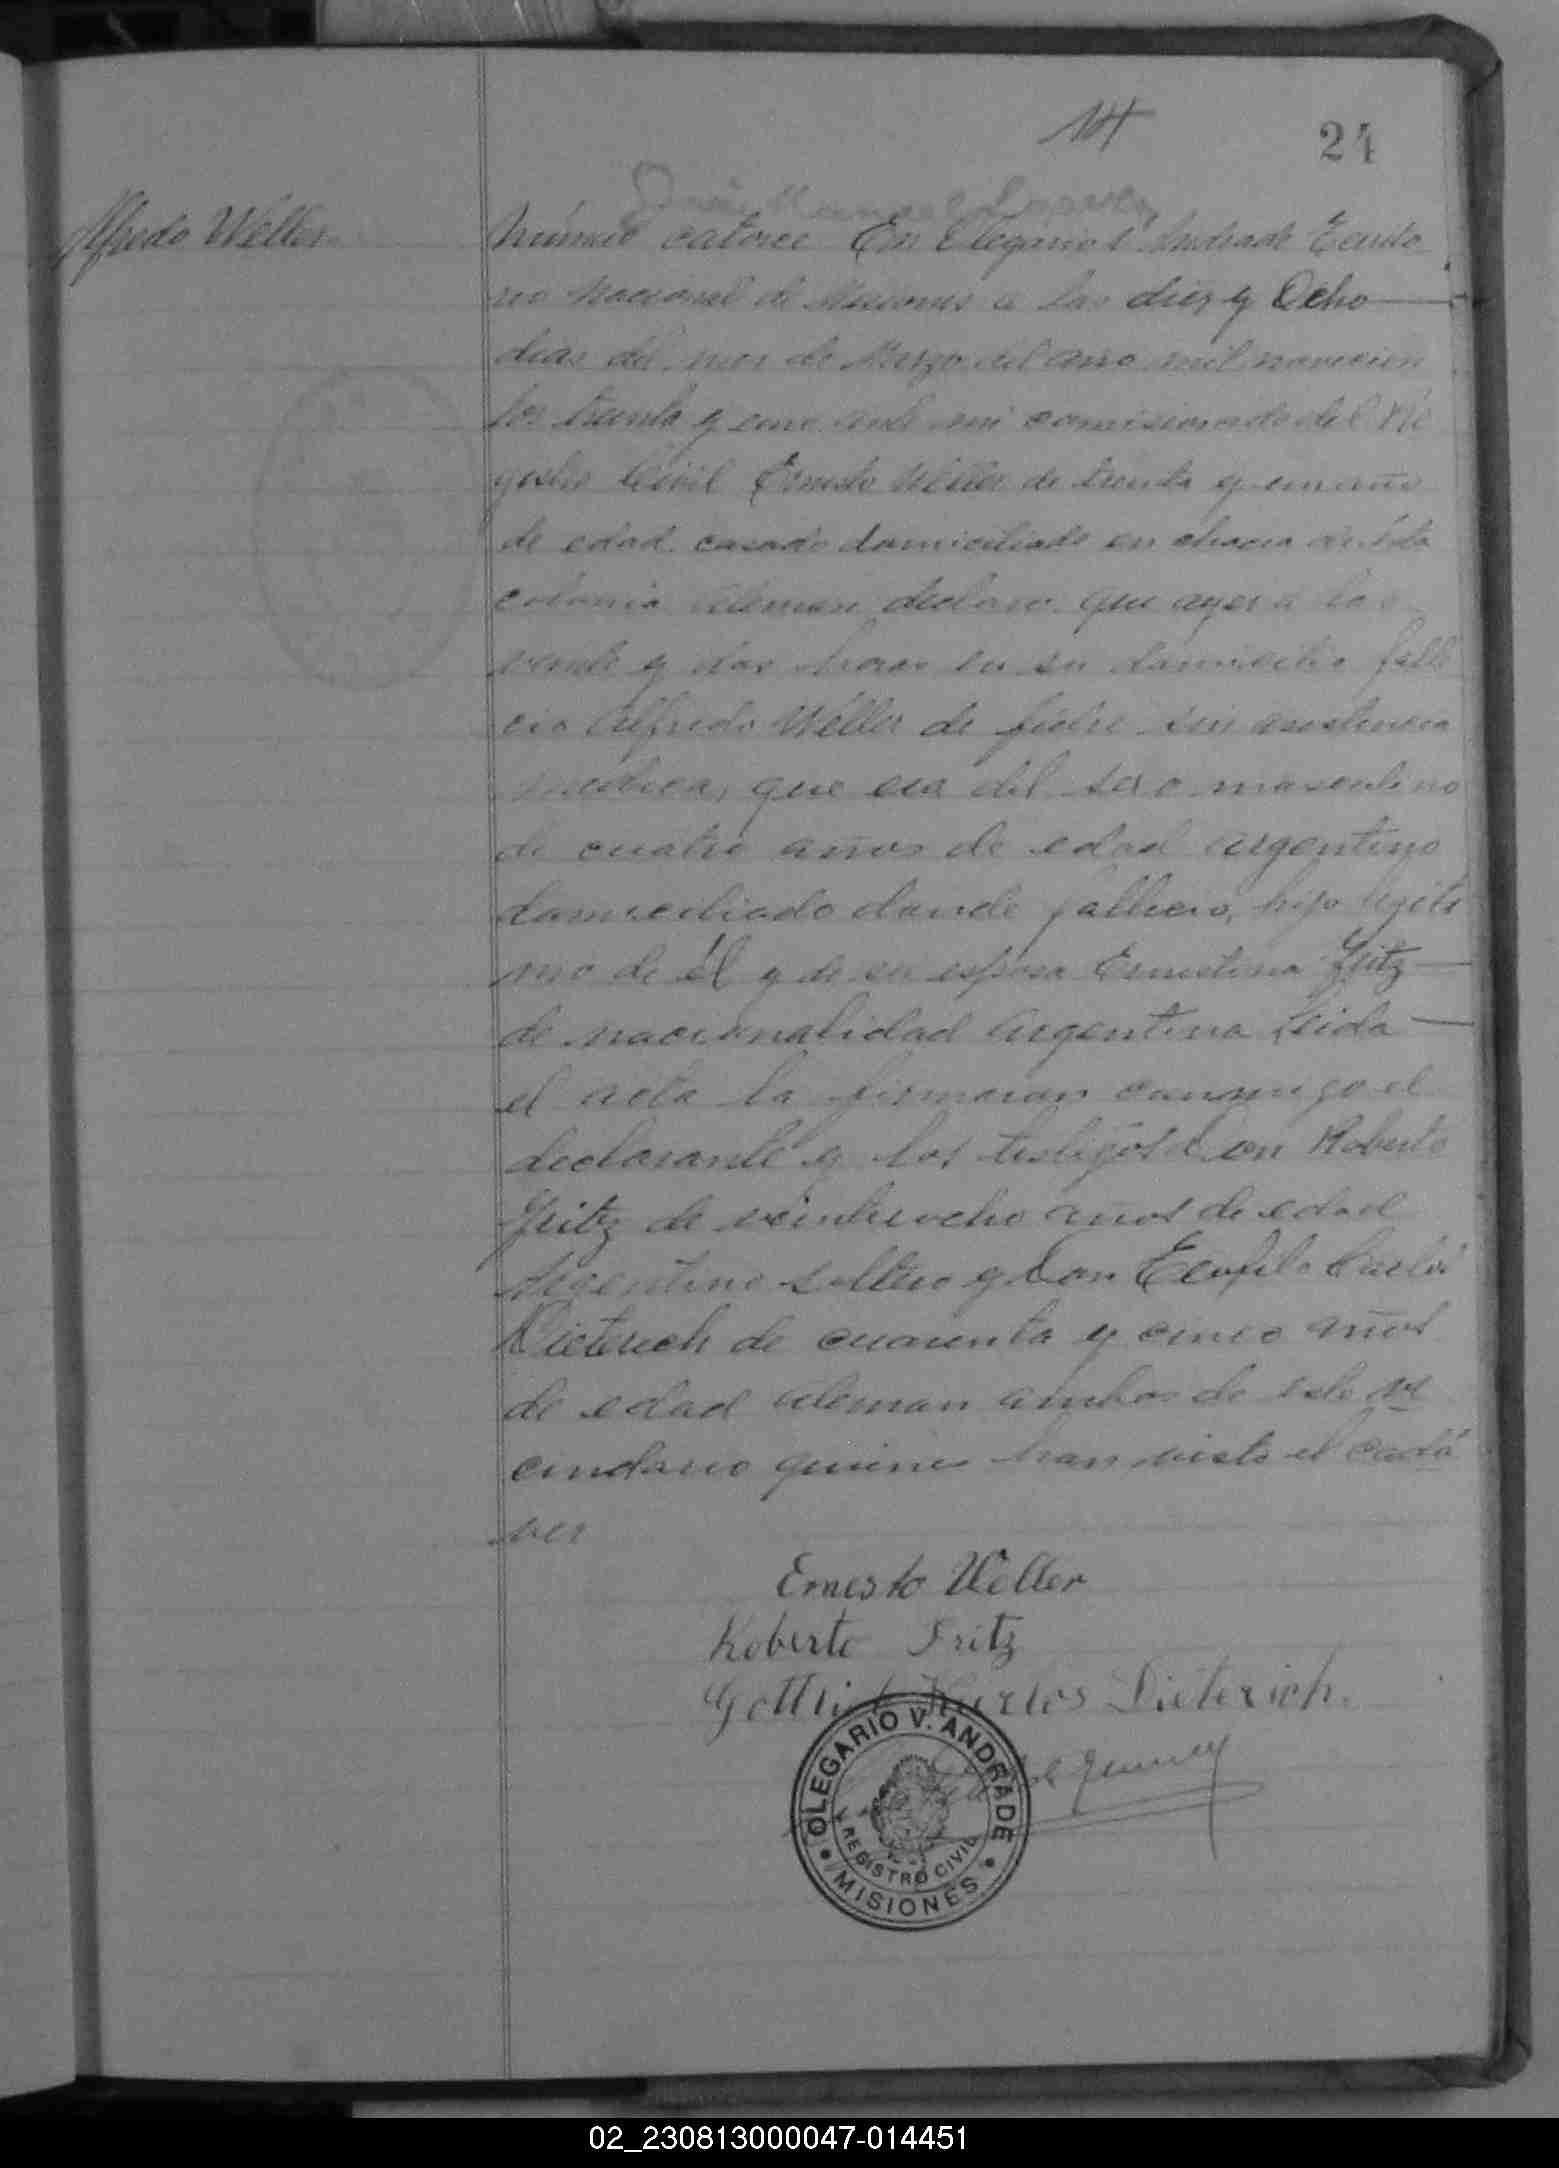 14
24
Alfredo Weller
Número catorce En Olegario V Andrade Territo
rio Nacional de Misiones a los diez y Ocho
dias del mes de Marzo del año mil novecien
tos treinta y uno ante mi comisionado del Re
gistro Civil Ernesto Weller de treinta y un año
de edad casado domiciliado en chacra de ésta
colonia aleman declaro que ayer a las
veinte y dos horas en su domicilio falle
cio Alfredo Weller de fiebre sin asistencia
medica, que era del sexo masculino
de cuatro años de edad argentino
domiciliado donde fallecio, hijo legiti
mo de él y de su esposa Ernestina Fritz
de nacionalidad argentina Leida
el acta la firmaran conmigo el
declarante y los testigos Don Roberto
Fritz de veintiocho años de edad
Argentino soltero y Don Teofilo Carlos
Dieterich de cuarenta y cinco años
de edad aleman ambos de este ve
cindario quienes han visto el cadá
ver
Ernesto Weller
Roberto Fritz
Gottlieb Karlos Dieterich.
OLEGARIO V. ANDRADE
REGISTRO CIVIL
MISIONES
02_230813000047-014451